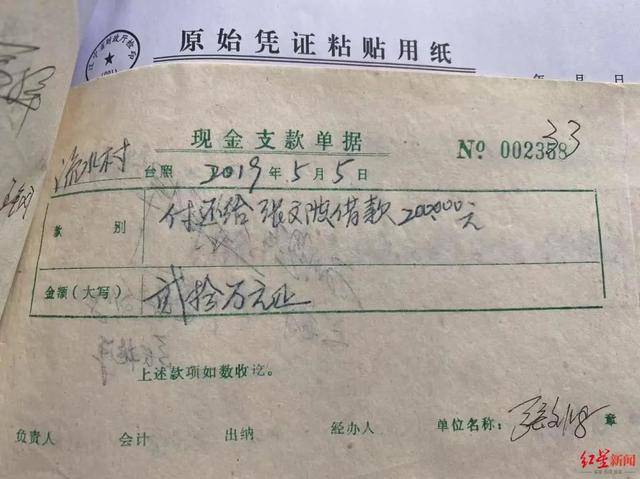 原始凭证粘贴用纸
年 月 日
现金支款单据
№ 00233
流水村 台照 2019年5月5日
款 别 付还给张文波借款200000元
金额(大写) 贰拾万元正
上述款项如数收讫。
负责人 会计 出纳 经办人 单位名称: 章
红星新闻